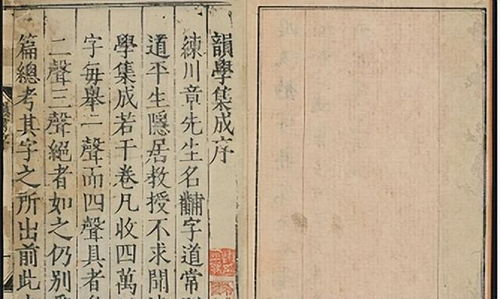 韻學集成序
練川章先生名黼字道常別
道平生隱居教授不求聞達
學集成若干卷凡收四萬
字毎舉一聲而四聲具者
二聲三聲絕者如之仍別
篇總考其字之所出前此